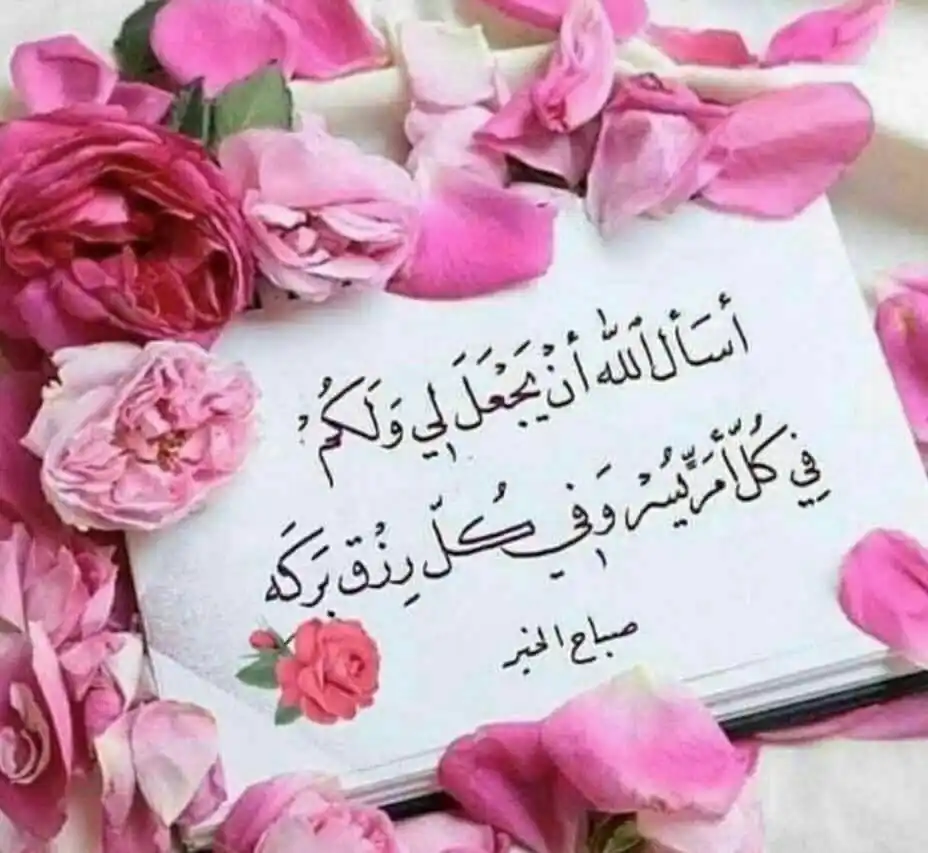 أسَأل الله أنْ يَجْعَلَ لِي وَلَكُمْ
فِي كُلّ أمرٍ يُسْر وَفي كُلّ رِزْق بَرَكَه
صباح الخير